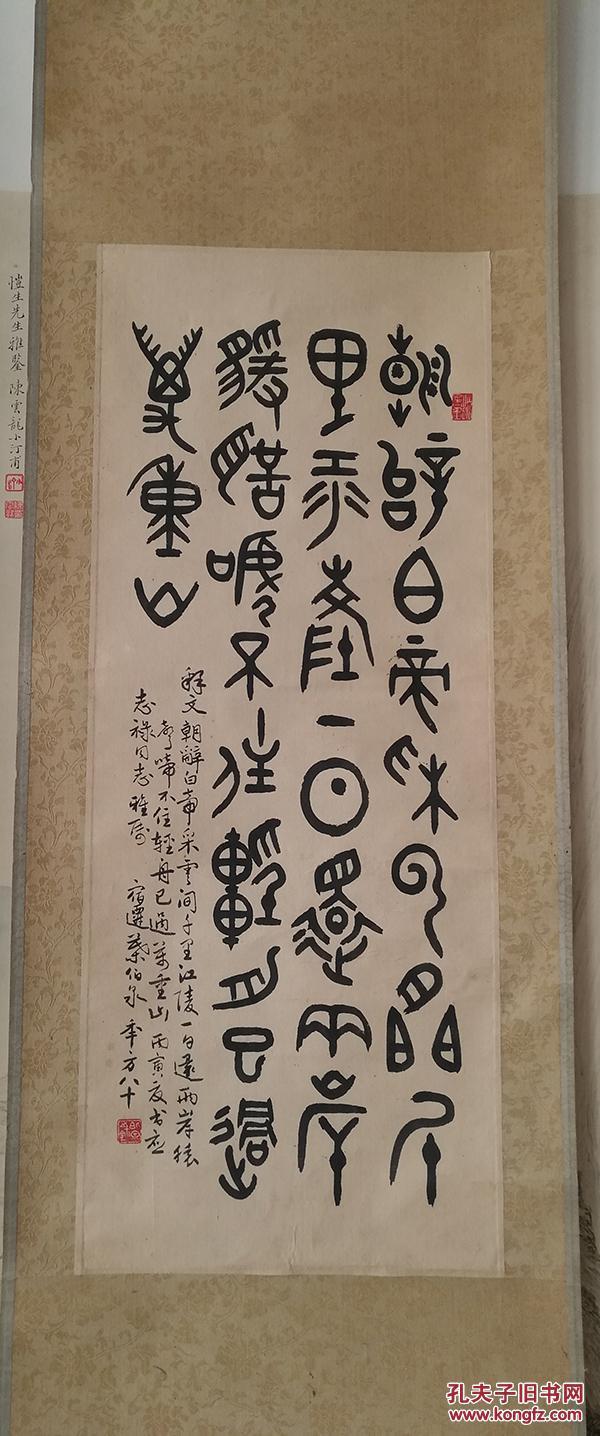 朝辝白帝采云間千
里江陵一日還兩岸
猨聲嗁不住輕舟已過
萬重山
释文朝辭白帝采雲间千里江陵一日還兩岸猿
聲啼不住輕舟已過萬重山丙寅夏书应
志禄同志雅属 宿遷葉伯泉 年方八十
愷生先生雅鑒 陳雲龍小汀甫
孔夫子旧书网
www.kongfz.com